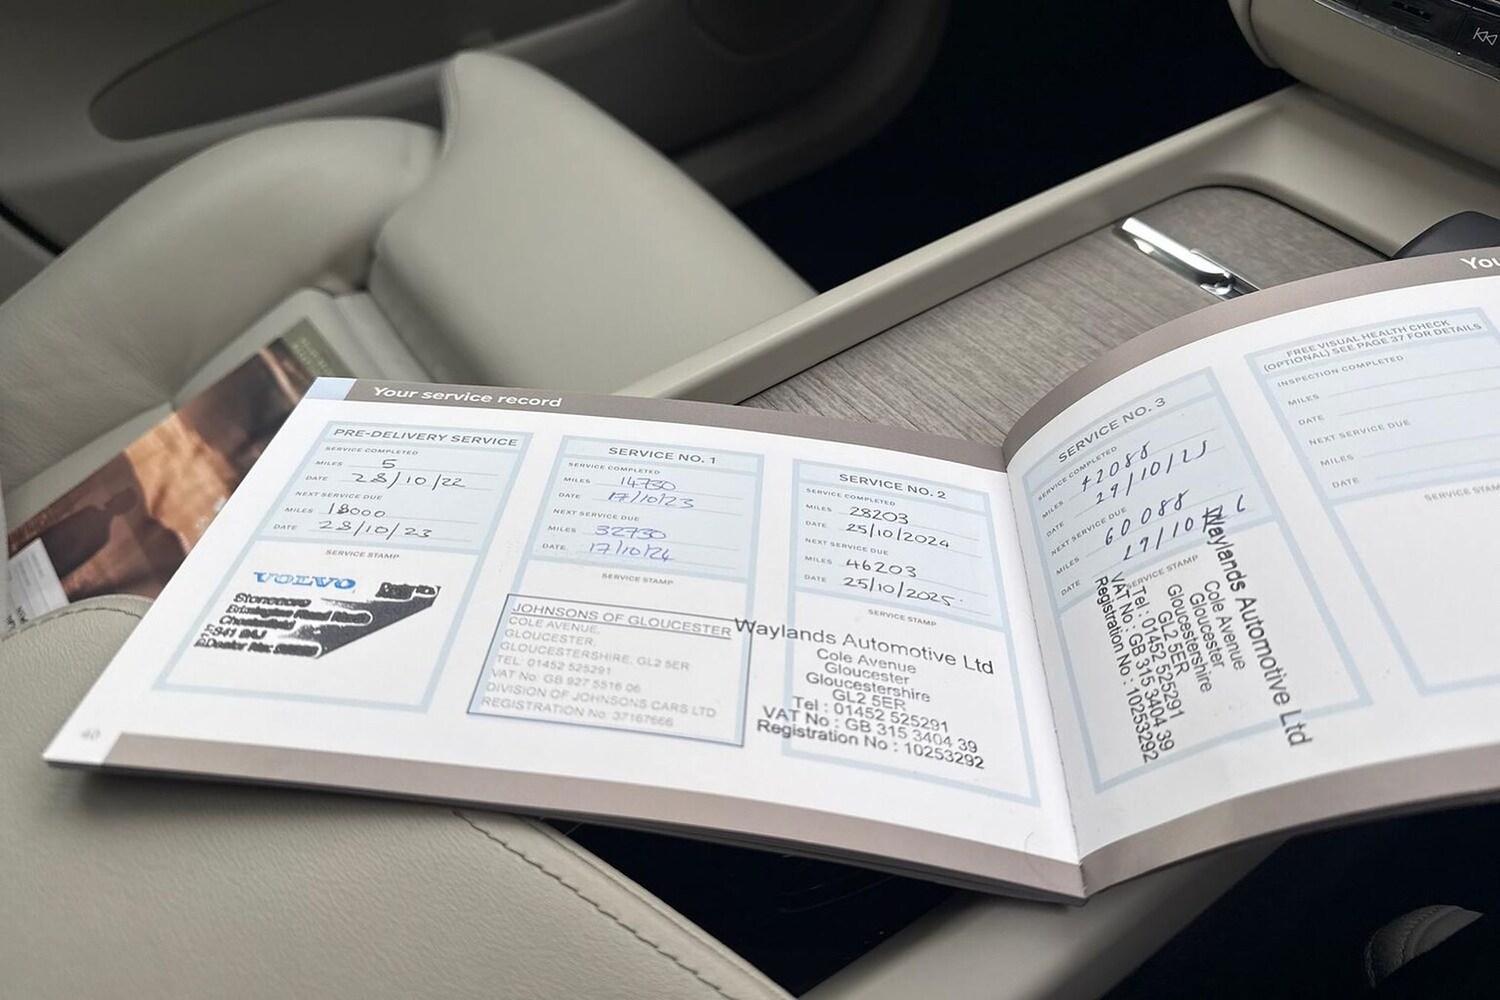 Your service record
PRE-DELIVERY SERVICE
SERVICE COMPLETED
MILES 5
DATE 28/10/22
NEXT SERVICE DUE
MILES 18000
DATE 28/10/23
SERVICE STAMP
VOLVO
Stoneacre
Chesterfield
S41
Dealer No:
40
SERVICE NO. 1
SERVICE COMPLETED
MILES 14730
DATE 17/10/23
NEXT SERVICE DUE
MILES 32730
DATE 17/10/24
SERVICE STAMP
JOHNSONS OF GLOUCESTER
COLE AVENUE,
GLOUCESTER,
GLOUCESTERSHIRE, GL2 5ER
TEL: 01452 525291
VAT No: GB 927 5516 06
DIVISION OF JOHNSONS CARS LTD
REGISTRATION No: 37167666
SERVICE NO. 2
SERVICE COMPLETED
MILES 28203
DATE 25/10/2024
NEXT SERVICE DUE
MILES 46203
DATE 25/10/2025.
SERVICE STAMP
Waylands Automotive Ltd
Cole Avenue
Gloucester
Gloucestershire
GL2 5ER
Tel : 01452 525291
VAT No : GB 315 3404 39
Registration No : 10253292
SERVICE NO. 3
SERVICE COMPLETED
MILES 42088
DATE 29/10/25
NEXT SERVICE DUE
MILES 60 088
DATE
SERVICE STAMP
Waylands Automotive Ltd
Cole Avenue
Gloucester
Gloucestershire
GL2 5ER
Tel : 01452 525291
VAT No : GB 315 3404 39
Registration No : 10253292
FREE VISUAL HEALTH CHECK
(OPTIONAL) SEE PAGE 37 FOR DETAILS
INSPECTION COMPLETED
MILES
DATE
NEXT SERVICE DUE
MILES
DATE